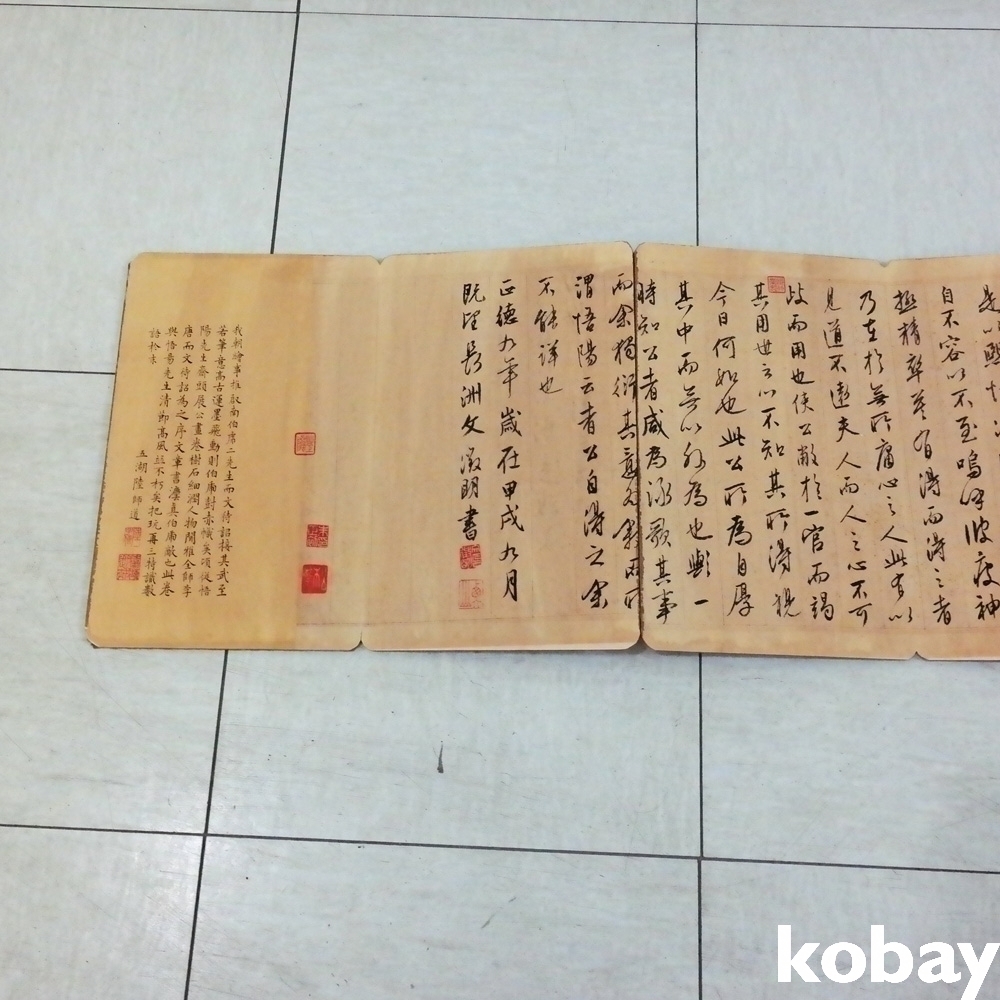 是以熙
自不容以不至嗚呼彼疲神
極精卒莫有得而得之者
乃在於無所庸心之人此有以
見道不遠夫人而人之心不可
歧而用也使公敝於一官而竭
其用世之心不知其所得視
今日何如也此公所為自厚
其中而無以外為也歟一
時知公者咸為詠歌其事
而余獨衍其意
謂悟陽云者公自得之余
不能詳也
正德九年歲在甲戌九月
既望長洲文徵明書
我朝繪事推啟南伯虎二先生而文待詔接其武至
若筆意高古運墨飛動則伯虎封赤幟矣頃從悟
陽先生齋頭展公畫卷樹石細潤人物閒雅全師李
唐而文待詔為之序文章書灋真伯虎敵也此卷
與悟陽先生清節高風並不朽矣把玩再三持識數
語於末
五湖陸師道
kobay